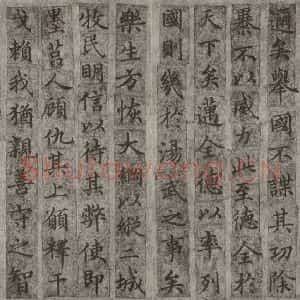 邇矣舉國不謀其功除
暴不以威力此至德全於
天下矣邁全德以率列
國則幾於湯武之事矣
樂生方恢大綱以縱二城
收民明信以待其弊使即
墨莒人顧仇其上願釋干
戈賴我猶親善守之智
Shufawang.CN